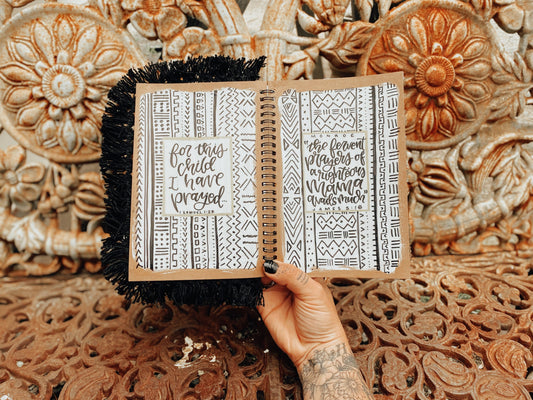 for this
child
I have
prayed.
1 SAMUEL 1:27
"the fervent
prayers of
a righteous
mama
avails much"